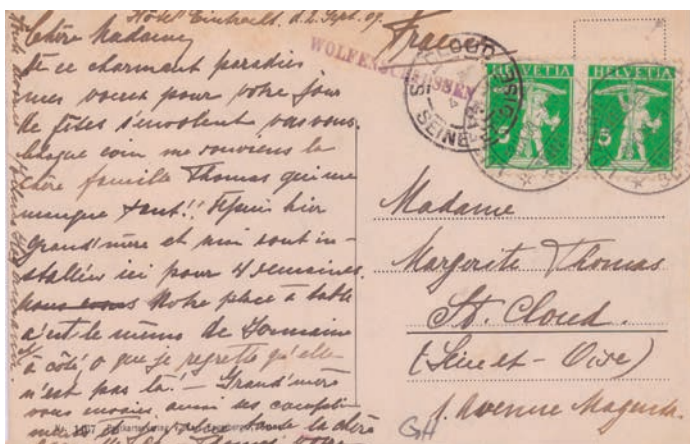 Hôtel Einhaelt. d. 2. Sept. 09.
Chère Madame,
De ce charmant paradis
mes voeux pour votre jour
de fêtes s'envolent vers vous.
chaque coin me souviens la
chère famille Thomas qui me
manque tant!! Depuis hier
Grand'mère et moi sont in-
stallées ici pour 4 semaines.
Notre place à table
c'est le même de
à côté, o que je regrette qu'elle
n'est pas là! – Grand'mère
vous envoie aussi ses compli-
ments
WOLFENSCHIESSEN
France
ST CLOUD
SEINE-ET-OISE
HELVETIA
5
HELVETIA
5
Madame
Margerite Thomas
St. Cloud.
(Seine et – Oise)
1. Avenue Magenta.
GH